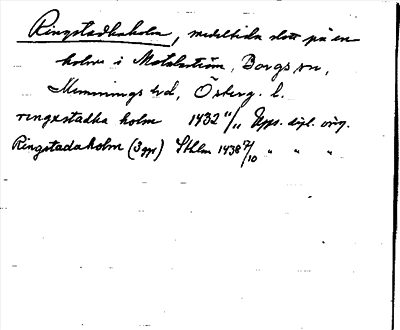 Ringstadhaholm, medeltida slott på en
holme i Motalaström, Borgs sn,
Memmings hd, Österg. l.
ringxstadha holm 1432 11/11 Upps. dipl. orig.
Ringstadaholm (3 ggr) Sthlm 1438 7/10 " " "